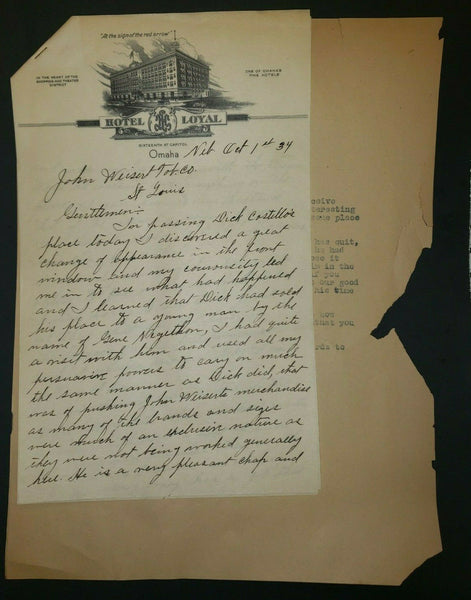 "At the sign of the red arrow"
IN THE HEART OF THE
SHOPPING AND THEATRE
DISTRICT
ONE OF OMAHA'S
FINE HOTELS
HOTEL LOYAL
SIXTEENTH AT CAPITOL
Omaha Neb Oct 1st 34
John Weisert Tob. Co.
St Louis
Gentlemen:-
In passing Dick Costello's
place today I discovered a great
change of appearance in the front
window and my couriousity led
me in to see what had happened
and I learned that Dick had sold
his place to a young man by the
name of Gene, I had quite
a visit with him and used all my
persuasive powers to cary on much
the same manner as Dick did, that
was of pushing John Weiserts merchandise
as many of the brands and sizes
were much of an exclusive nature as
they were not being worked generally
here. He is a very pleasant chap and
ceive
teresting
some place
has quit,
he had
see it
in the
if you
our good
his time
how
that you
rds to